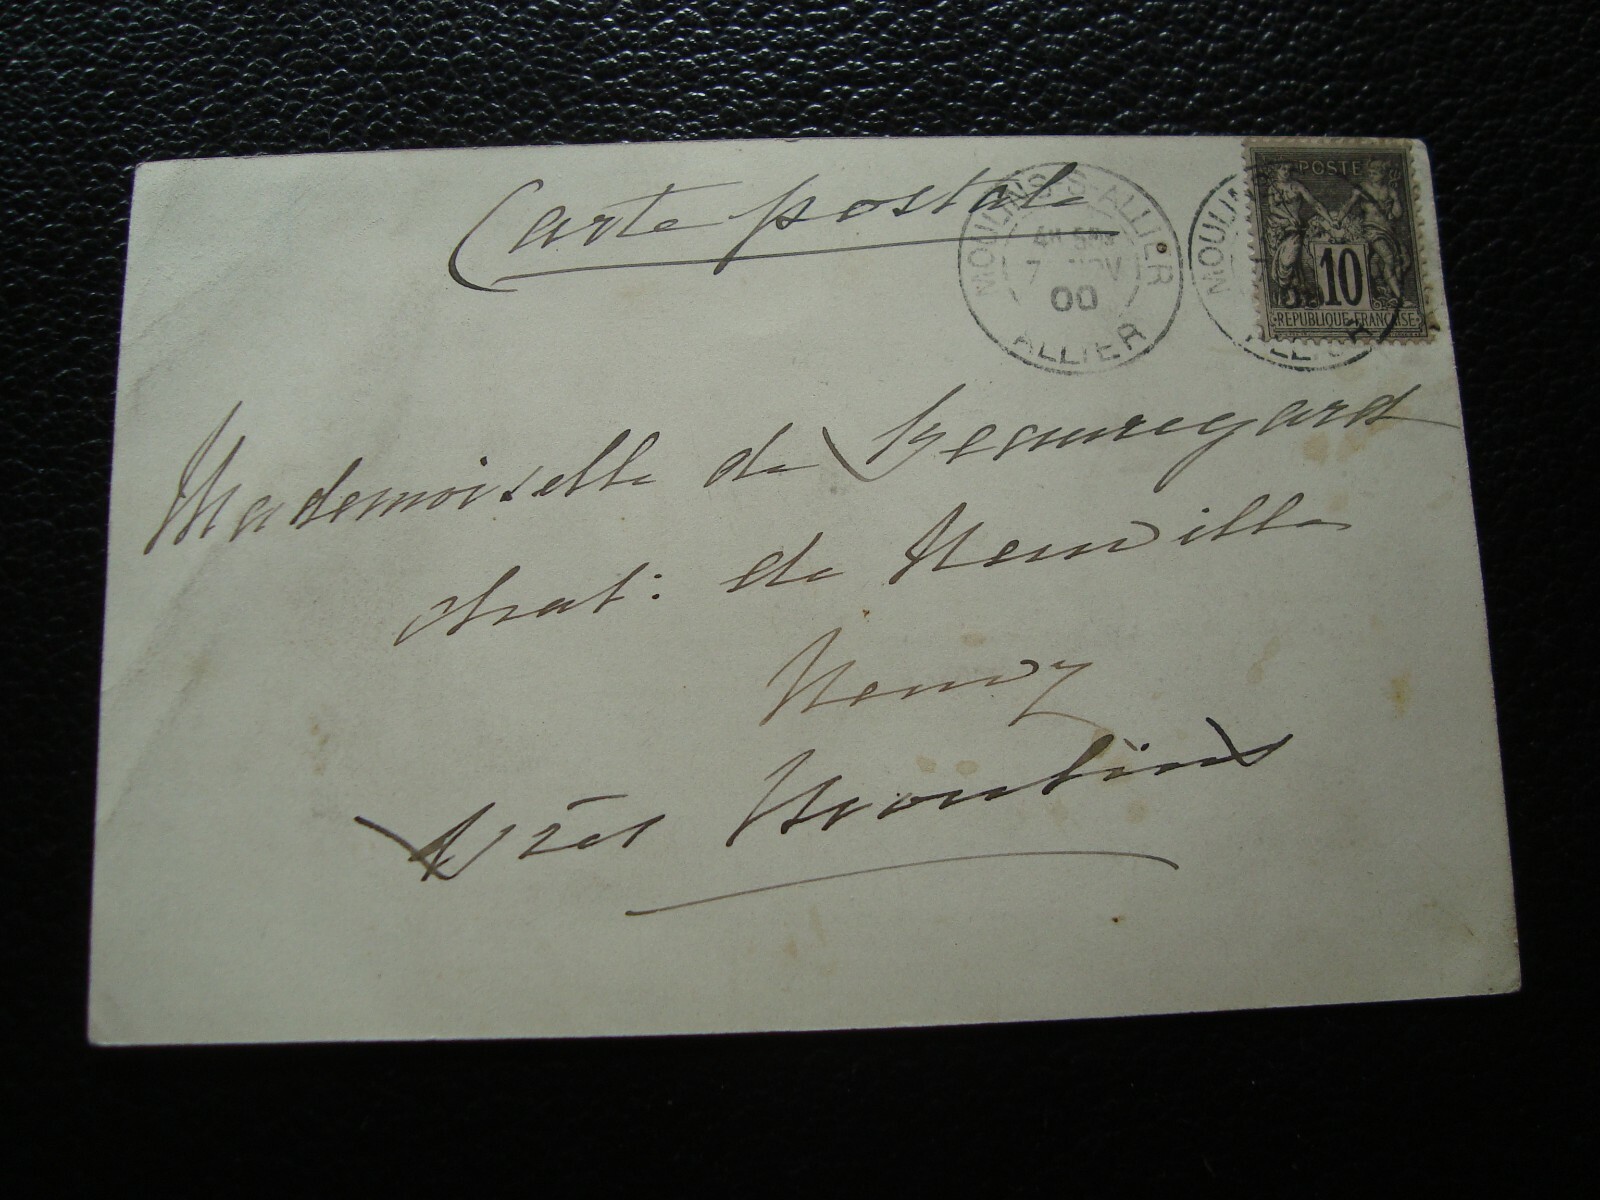 Carte postale
MOULINS-S-ALLIER
7 NOV
00
ALLIER
MOULIN
POSTE
10
REPUBLIQUE FRANÇAISE
Mademoiselle de Beauregard
chat: de Neuville
Neuvy
près Moulins